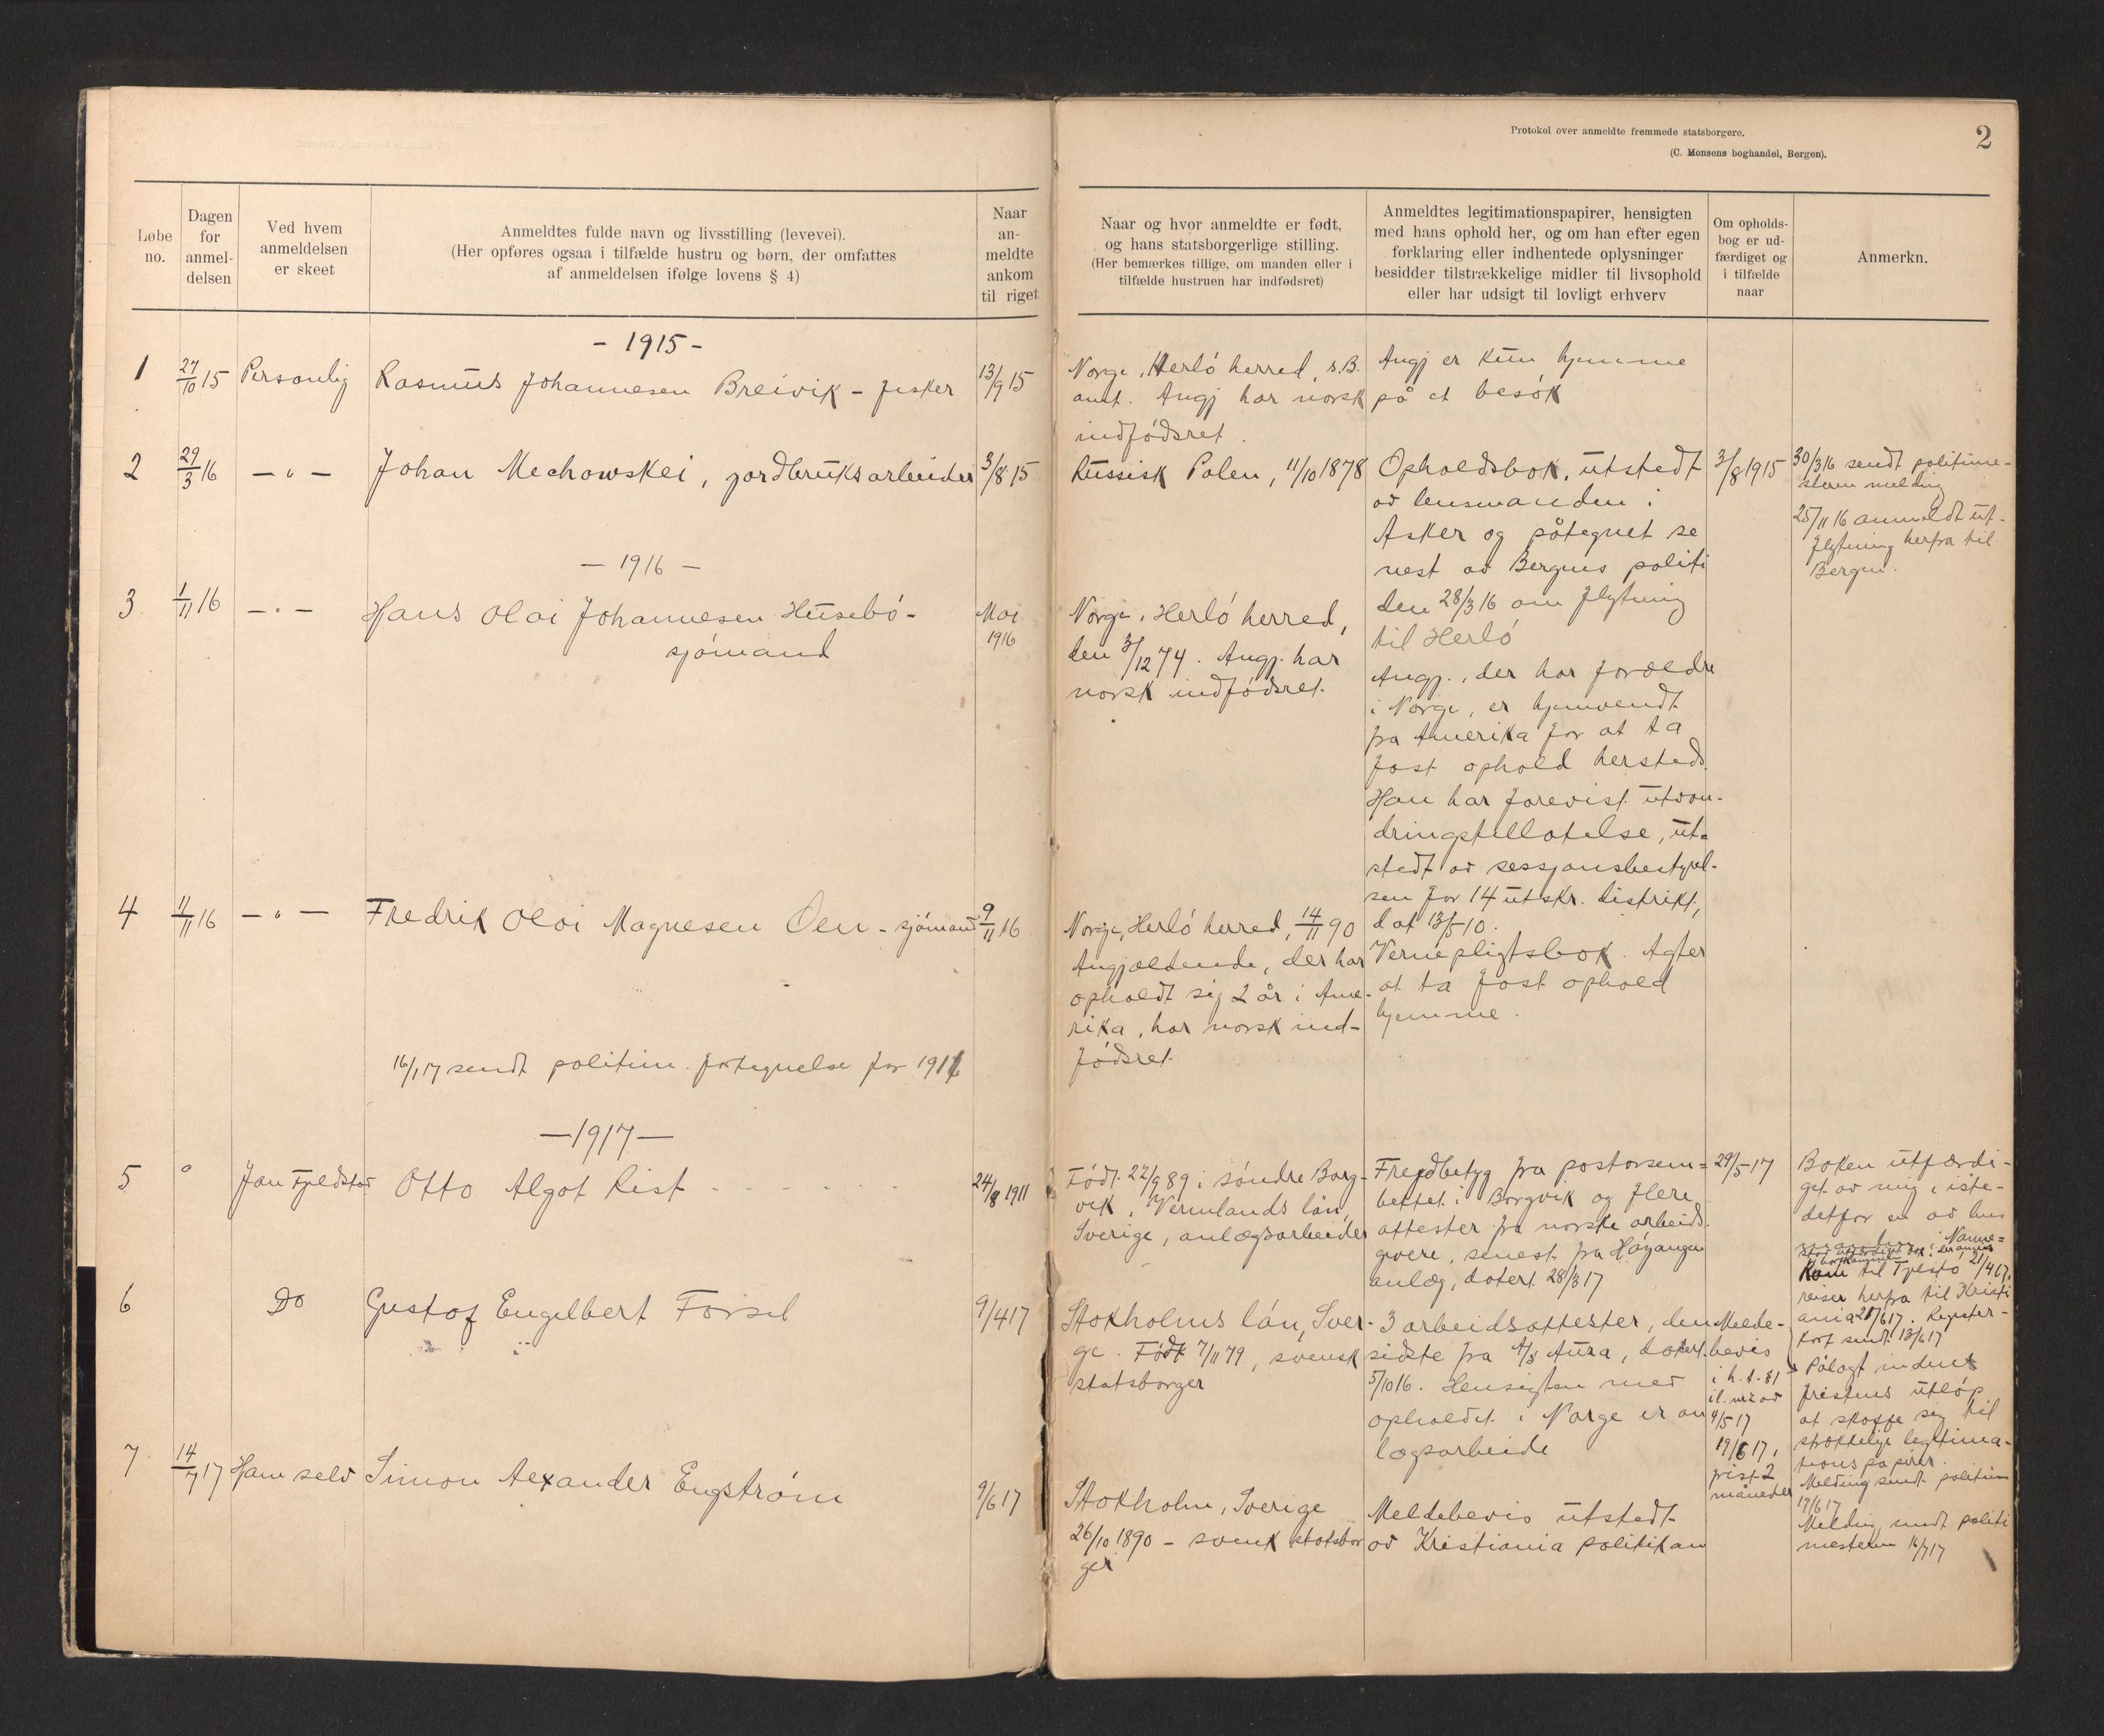 Protokol over anmeldte fremmede statsborgere.
2
(C. Monsens boghandel, Bergen).
Løbe
no.
Dagen
for
anmel-
delsen
Ved hvem
anmeldelsen
er skeet
Anmeldtes fulde navn og livsstilling (levevei).
(Her opføres ogsaa i tilfælde hustru og børn, der omfattes
af anmeldelsen ifølge lovens § 4)
Naar
an-
meldte
ankom
til riget
Naar og hvor anmeldte er født,
og hans statsborgerlige stilling.
(Her bemærkes tillige, om manden eller i
tilfælde hustruen har indfødsret)
Anmeldtes legitimationspapirer, hensigten
med hans ophold her, og om han efter egen
forklaring eller indhentede oplysninger
besidder tilstrækkelige midler til livsophold
eller har udsigt til lovligt erhverv
Om opholds-
bog er ud-
færdiget og
i tilfælde
naar
Anmerkn.
- 1915 -
1
27/10 15
Personlig
Rasmus Johannesen Breivik - fisker
13/9 15
Norge, Herló herred, s.B.
amt. Angj har norsk
indfódsret.
Angj er kun hjemme
på et besók
2
29/3 16
- " -
Johan Mechowskei, jordbruksarbeider
3/8 15
Russisk Polen, 11/10 1878
Opholdsbok, utstedt
av lensmanden i
Asker og påtegnet se
nest av Bergens politi
den 28/3 16 om flytning
til Herló
3/8 1915
30/3 16 sendt politime-
steren melding
25/11 16 anmeldt ut-
flytning herfra til
Bergen.
- 1916 -
3
1/11 16
- " -
Hans Olai Johannesen Husebó -
sjómand
Mai
1916
Norge, Herló herred,
den 3/12 74. Angj. har
norsk indfódsret.
Angj., der har forældre
i Norge, er hjemvendt
fra Amerika for at ta
fast ophold hersteds.
Han har forevist utvan-
dringstillatelse, ut-
stedt av sessjonsbestyrel-
sen for 14 utskr. distrikt,
dat 13/5 10.
4
11/11 16
- " -
Fredrik Olai Magnesen Oen - sjómand
9/11 16
Norge, Herló herred, 14/11 90
Angjældende, der har
opholdt sig 2 år i Ame-
rika, har norsk ind-
fódsret
Vernepligtsbok. Agter
at ta fast ophold
hjemme.
16/1 17 sendt politim. fortegnelse for 1916
- 1917 -
5
"
Jan Fjeldstad
Otto Algot Rist
24/8 1911
Født 22/9 89 i söndre Borg-
vik, Vermlands län,
Sverige, anlægsarbeider
Frejdbetyg fra pastorsem-
bettet i Borgvik og flere
attester fra norske arbeids
givere, senest fra Høyanger
anlæg, datert 28/3 17
29/5 17
Boken utfærdi-
get av mig i iste-
detfor en av lens
Kom til Tjelstó 21/4 67,
reiser herfra til Kristi
ania 28/6 17. Register-
kort sendt 13/6 17
6
Do
Gustof Engelbert Forsel
9/4 17
Stokholms län, Sver-
ge. Födt 7/11 79, svensk
statsborger
3 arbeidsattester, den
sidste fra A/S Aura, datert
5/10 16. Hensigten med
opholdet i Norge er an
lægsarbeide
Melde-
bevis
4/5 17
19/6 17,
frist 2
måneder
Pålagt inden
fristens utlóp
at skaffe sig til
strækkelige legitima-
tionspapirer.
Melding sendt politim
19/6 17
7
14/7 17
Ham selv
Simon Aexander Engström
9/6 17
Stokholm, Sverige
26/10 1890 - svensk statsbor
ger
Meldebevis utstedt
av Kristiania politikam
Melding sendt politi
mesteren 16/7 17